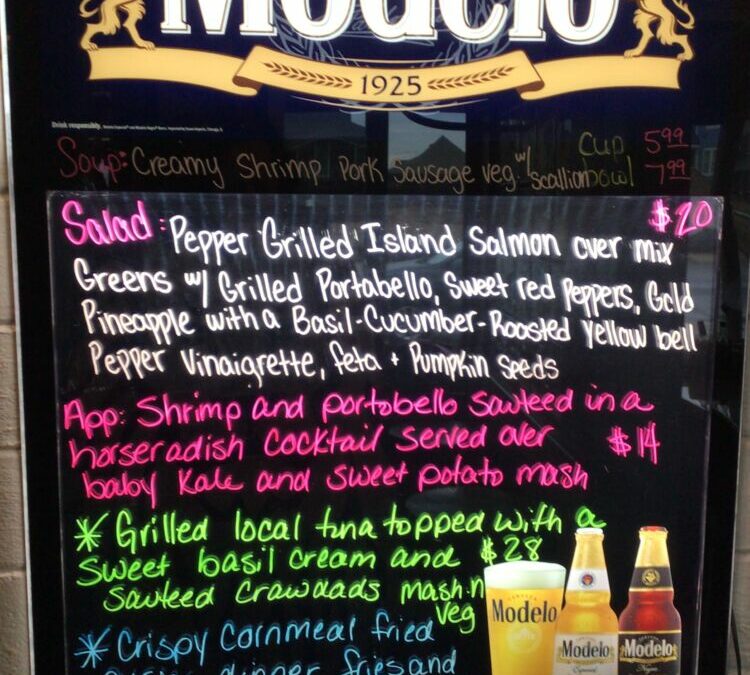 Modelo
1925
Drink responsibly.
Soup: Creamy Shrimp Pork Sausage veg. w/ scallion cup 5.99
bowl 7.99
Salad: $20
Pepper Grilled Island Salmon over mix
Greens w/ Grilled Portabello, Sweet red Peppers, Gold
Pineapple with a Basil-Cucumber-Roasted Yellow bell
Pepper Vinaigrette, feta + Pumpkin seeds
App: Shrimp and portobello sauteed in a
horseradish cocktail served over $14
baby Kale and sweet potato mash
* Grilled local tuna topped with a
sweet basil cream and $28
sauteed crawdads mash n
veg
* Crispy Cornmeal fried
dinner fries and
Modelo
Modelo
Especial
Modelo
Negra